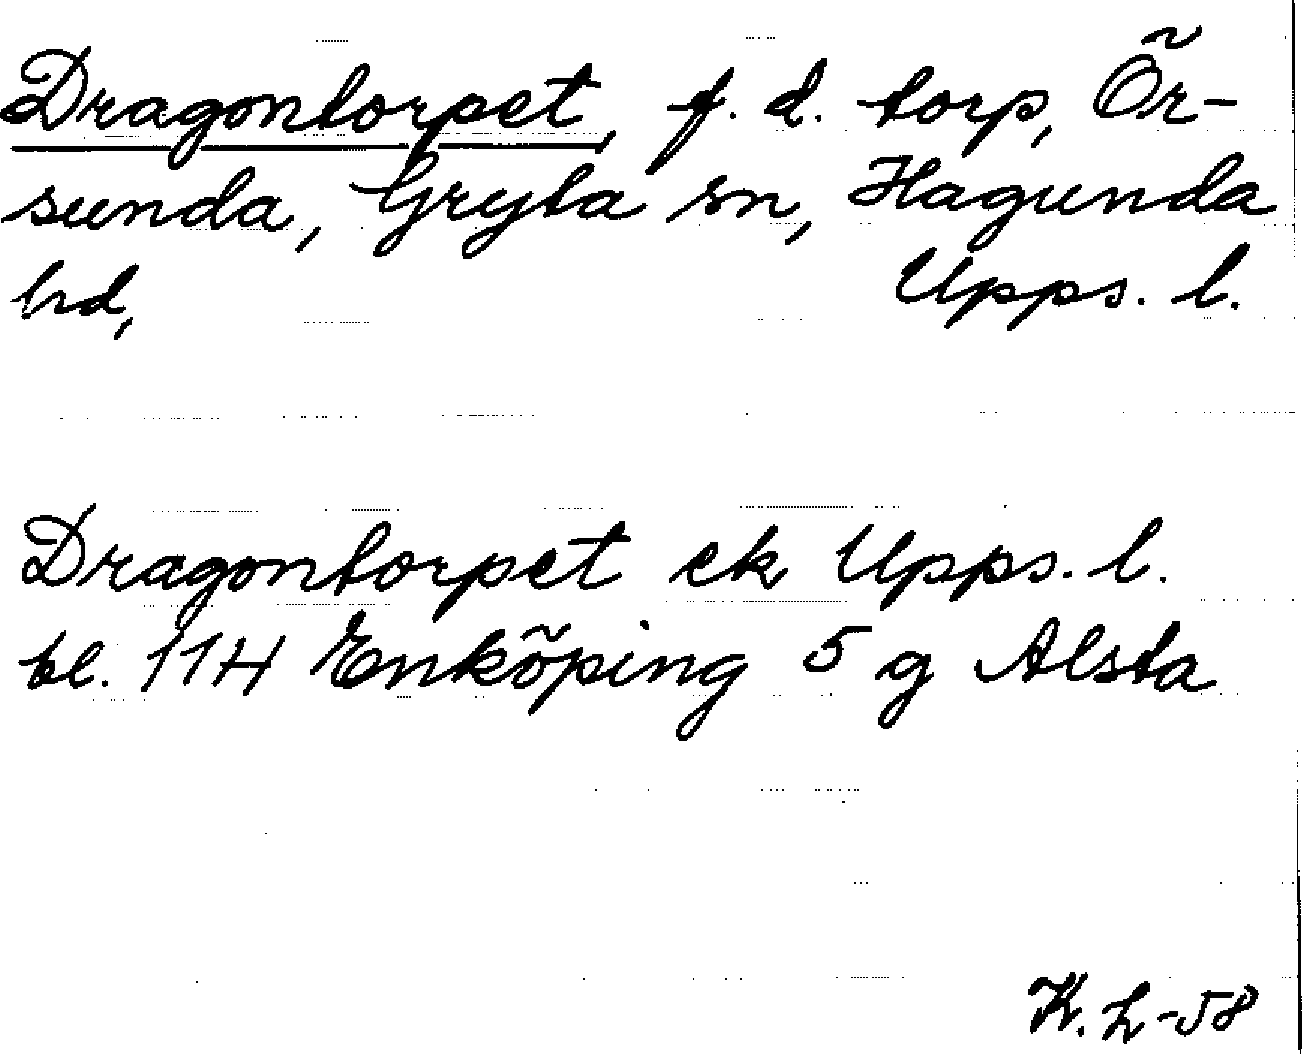 Dragontorpet, f. d. torp, Ör-
sunda, Gryta sn, Hagunda
hd, Upps. l.
Dragontorpet ek Upps. l.
bl. 11H Enköping 5 g Alsta
K. L-58